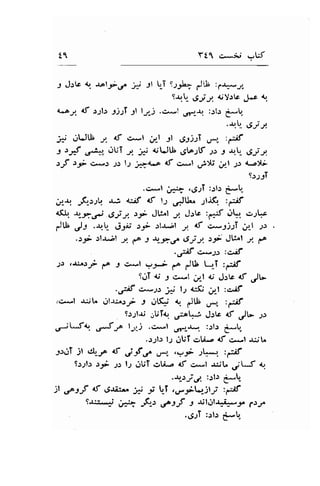 کتاب نخست ۳٤۹ ٤۹
پرسیدم: ظالم چطور؟ آیا او نیز می‌خواهد به عادل و
به عمل عادلانه برتری یابد؟
پاسخ داد: بدیهی است. زیرا او آرزو دارد که بر همه
برتری یابد.
گفتم: پس آرزوی او این است که بر ظالمان نیز
برتری یابد و در کارهای ظالمانه نیز بر آنان پیشی گیرد و
خلاصه در این تلاش است که همه‌چیز را در دست خود گرد
آورد؟
پاسخ داد: آری، چنین است.
گفتم: بگذار مطالبی را که گفته شد باردیگر بدین
عبارت بیان کنیم: عادل بر امثال خود برتری نمی‌جوید بلکه
در این آرزوست که بر اضداد خود تفوق یابد. ولی ظالم
هم بر امثال خود برتری می‌جوید و هم بر اضداد خود.
گفت: درست گفتی.
گفتم: آیا ظالم هم خوب است و هم خردمند، در
حالی که عادل نه این است و نه آن؟
گفت: این نکته را نیز درست گفتی.
گفتم: پس ظالم به نیکان و خردمندان مانند است،
در حالی که عادل شباهتی به‌آنان ندارد؟
پاسخ داد: بدیهی است. زیرا هرکسی به‌کسانی
مانند است که صفات آنان را دارد.
گفتم: بسیار خوب، پس می‌گوئی که هریک از آن‌دو
به کسانی مانند است که صفات آنان را در خود دارد؟
پاسخ داد: بی‌تردید.
گفتم: ترازیماخوس، آیا تو نیز معتقدی که گروهی از
مردم موسیقیدان‌اند و گروهی دیگر چنین نیستند؟
پاسخ داد: آری.